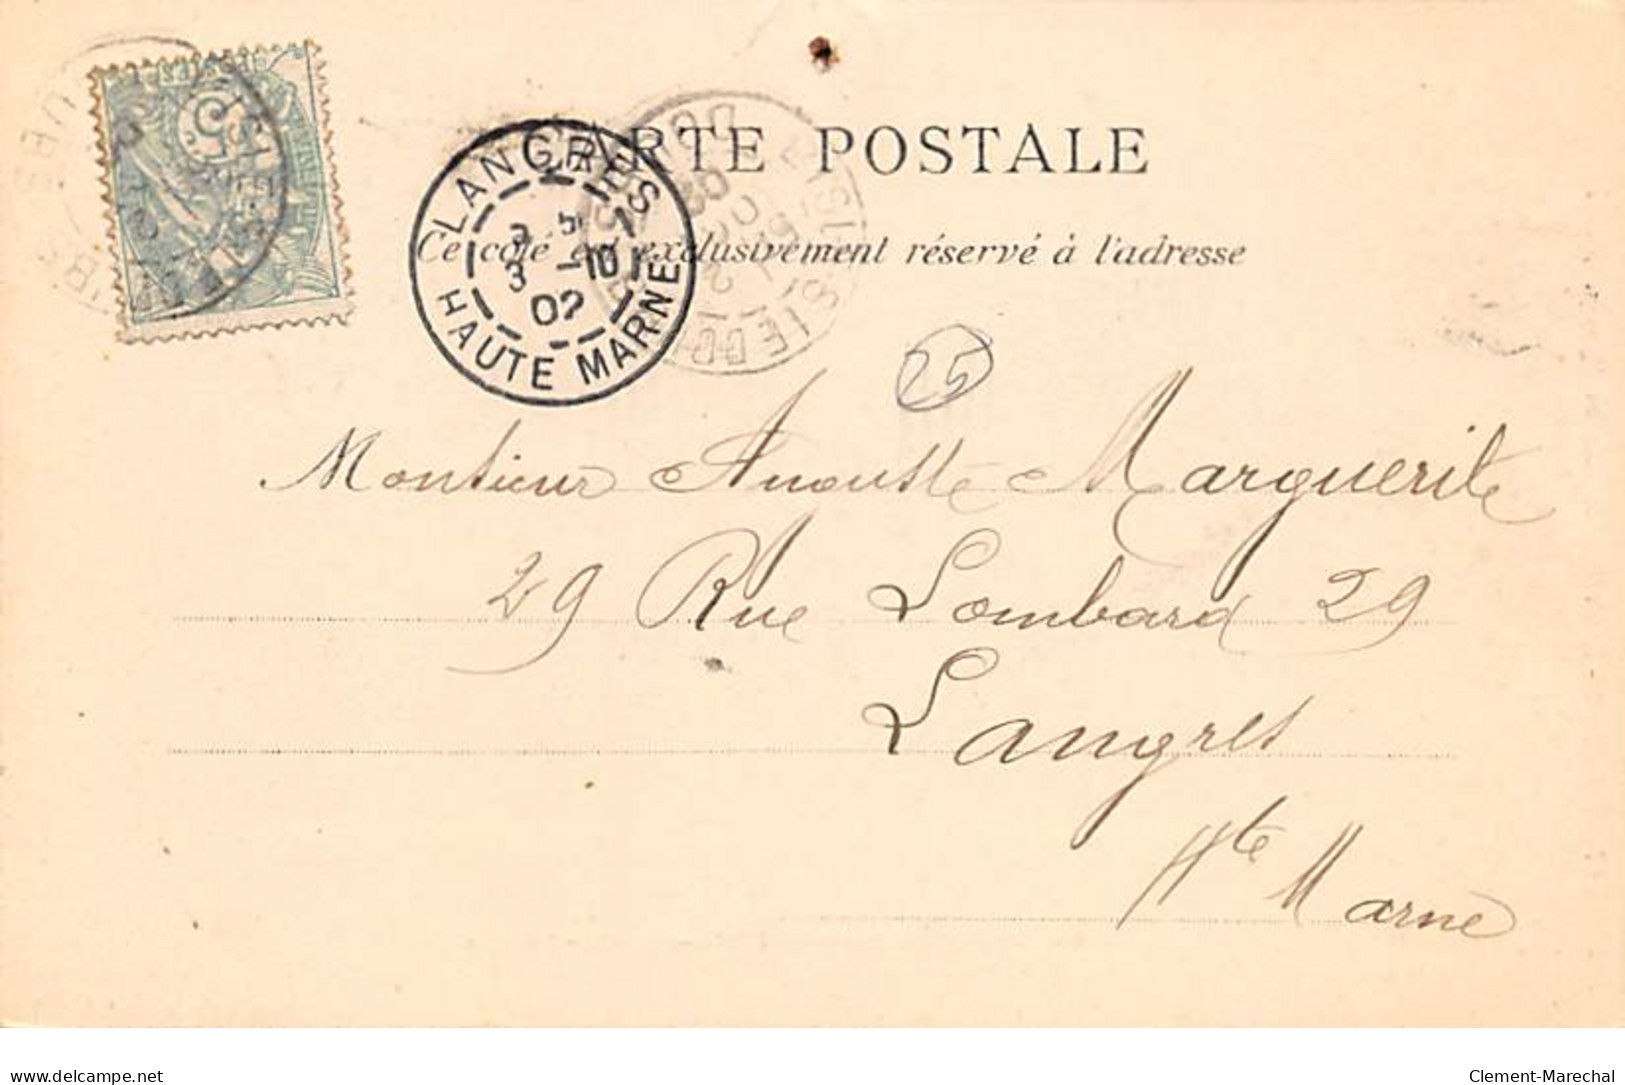 CARTE POSTALE
Ce côté est exclusivement réservé à l'adresse
LANGRES
3 -10
02
HAUTE MARNE
25
Monsieur Auguste Marguerite
29 Rue Lombard 29
Langres
Hte Marne
delcampe.net
Clement-Marechal